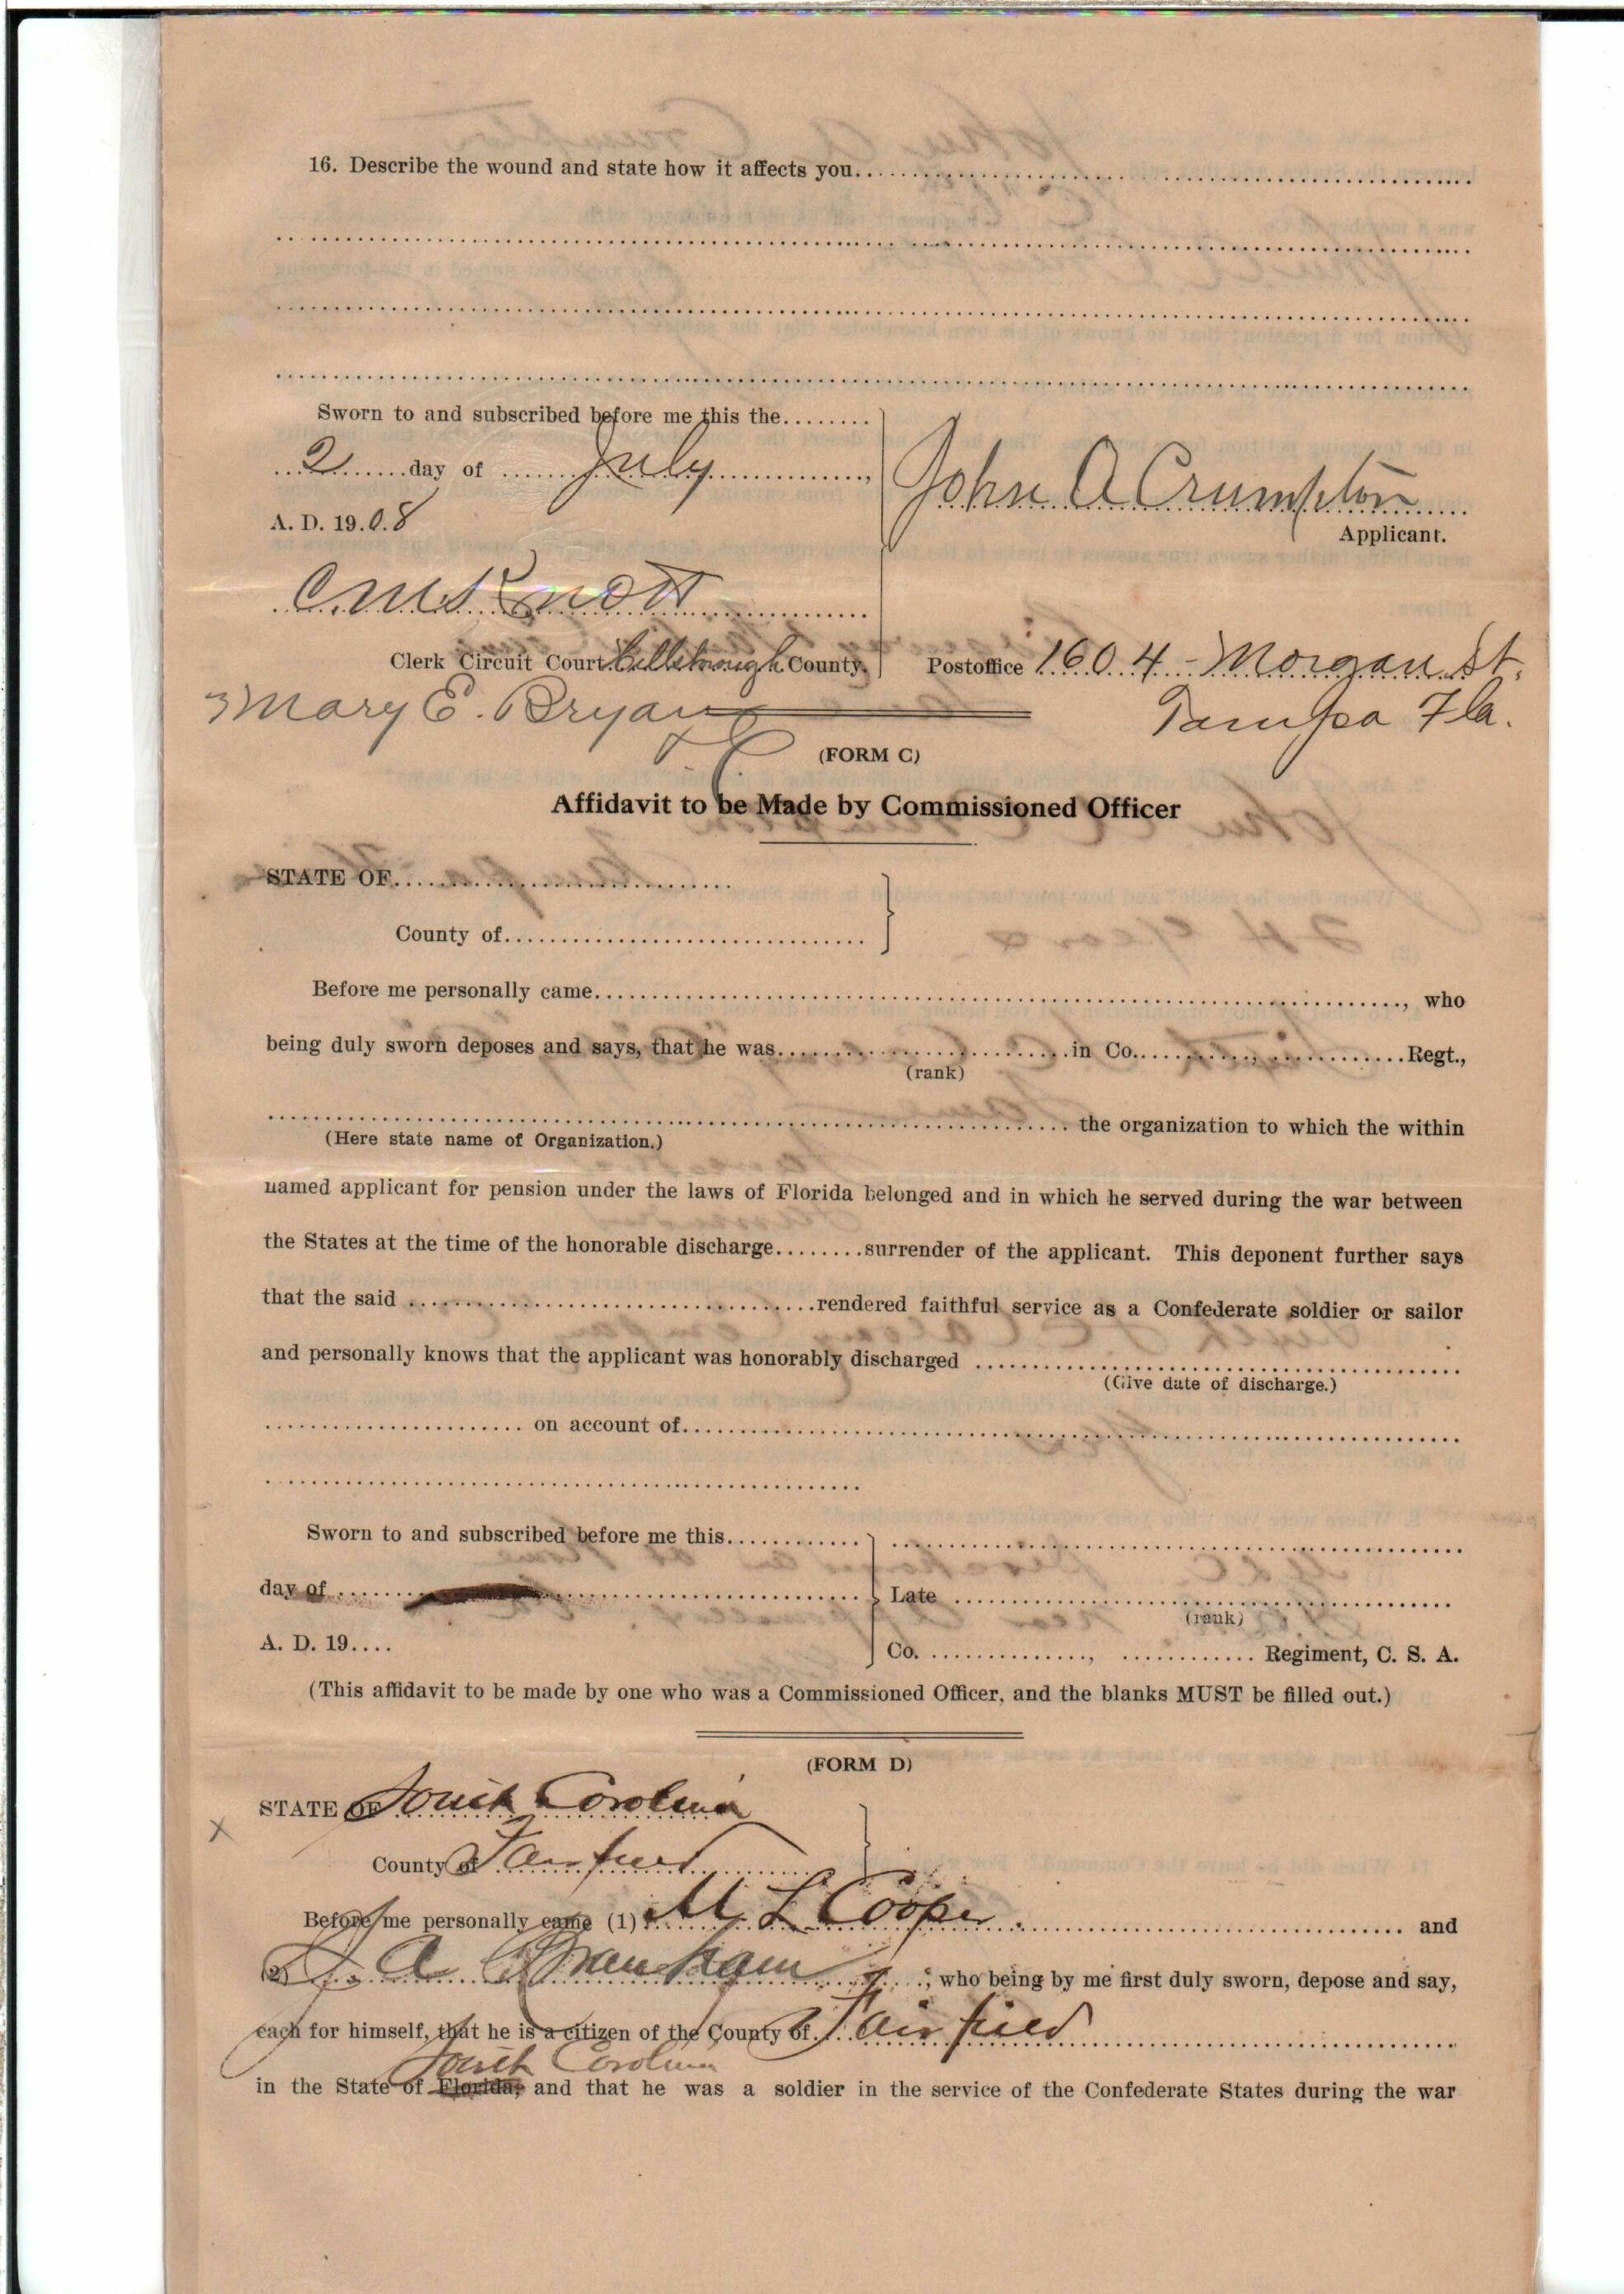 16. Describe the wound and state how it affects you
Sworn to and subscribed before me this the
2 day of July
A. D. 1908
John A Crumpton
Applicant.
C. M. Knott
Clerk Circuit Court Hillsborough County.
Postoffice 1604 - Morgan St.
Tampa Fla.
Mary E. Bryan
DC
(FORM C)
Affidavit to be Made by Commissioned Officer
STATE OF
County of
Before me personally came , who
being duly sworn deposes and says, that he was in Co. , Regt.,
(rank)
the organization to which the within
(Here state name of Organization.)
named applicant for pension under the laws of Florida belonged and in which he served during the war between
the States at the time of the honorable discharge surrender of the applicant. This deponent further says
that the said rendered faithful service as a Confederate soldier or sailor
and personally knows that the applicant was honorably discharged
(Give date of discharge.)
on account of
Sworn to and subscribed before me this
day of
Late
(rank)
A. D. 19
Co. , Regiment, C. S. A.
(This affidavit to be made by one who was a Commissioned Officer, and the blanks MUST be filled out.)
(FORM D)
STATE OF South Carolina
X
County of Fairfield
Before me personally came (1) M L Cooper and
(2) A Branham ; who being by me first duly sworn, depose and say,
each for himself, that he is a citizen of the County of Fairfield
South Carolina
in the State of Florida, and that he was a soldier in the service of the Confederate States during the war